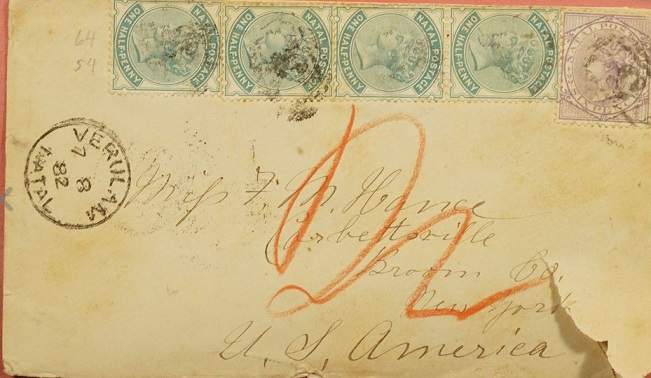 64
54
NATAL POSTAGE
ONE HALF-PENNY
NATAL POSTAGE
ONE HALF-PENNY
NATAL POSTAGE
ONE HALF-PENNY
NATAL POSTAGE
ONE HALF-PENNY
NATAL POSTAGE
SIXPENCE
VERULAM
7
8
82
NATAL
Miss F. M. Hance
Corbettsville
Broom Co.
New York
U. S. America